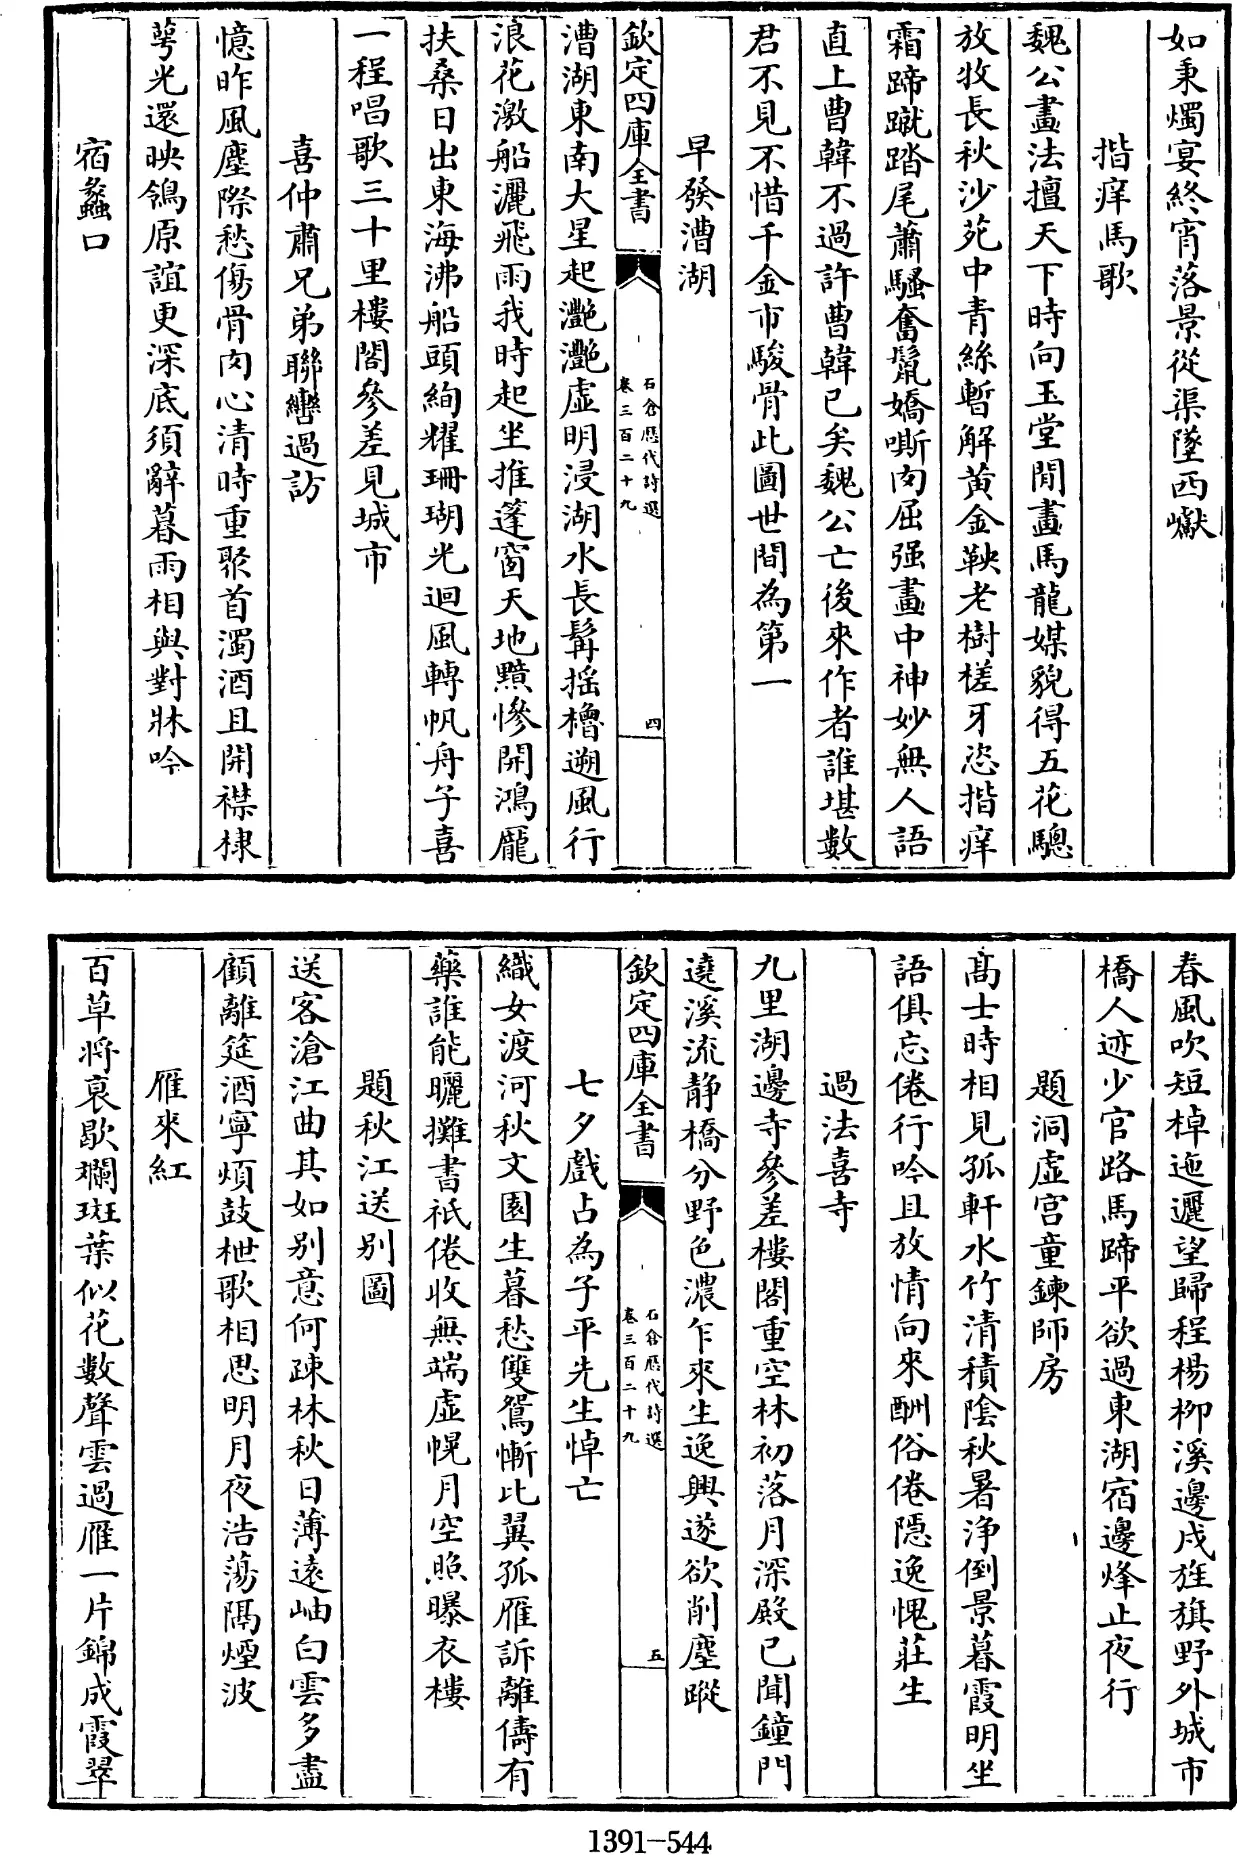 如秉燭宴終宵落景從渠墜西巘
揩痒馬歌
魏公畫法擅天下時向玉堂閒畫馬龍媒貌得五花驄
放牧長秋沙苑中青絲暫解黄金鞅老樹槎牙恣揩痒
霜蹄蹴踏尾蕭騷奮鬛嬌嘶肉屈强畫中神妙無人語
直上曹韓不過許曹韓已矣魏公亡後來作者誰堪數
君不見不惜千金市駿骨此圖世間為第一
早發漕湖
欽定四庫全書
石倉歷代詩選
卷三百二十九
四
漕湖東南大星起灔灔虚明浸湖水長髯摇櫓遡風行
浪花激船灑飛雨我時起坐推蓬窗天地黯慘開鴻龎
扶桑日出東海沸船頭絢耀珊瑚光迴風轉帆舟子喜
一程唱歌三十里樓閣參差見城市
喜仲肅兄弟聯轡過訪
憶昨風塵際愁傷骨肉心清時重聚首濁酒且開襟棣
萼光還映鴒原誼更深底須辭暮雨相與對牀吟
宿蠡口
春風吹短棹迤邐望歸程楊柳溪邊戍旌旗野外城市
橋人迹少官路馬蹄平欲過東湖宿邊烽止夜行
題洞虚宫童鍊師房
髙士時相見孤軒水竹清積陰秋暑浄倒景暮霞明坐
語俱忘倦行吟且放情向來酬俗倦隱逸愧莊生
過法喜寺
九里湖邊寺參差樓閣重空林初落月深殿已聞鐘門
遶溪流静橋分野色濃乍來生逸興遂欲削塵蹤
欽定四庫全書
石倉歷代詩選
卷三百二十九
五
七夕戲占為子平先生悼亡
織女渡河秋文園生暮愁雙鴛慚比翼孤雁訴離儔有
藥誰能曬攤書祇倦收無端虚幌月空照曝衣樓
題秋江送别圖
送客滄江曲其如别意何疎林秋日薄逺岫白雲多盡
顧離筵酒寧煩鼓枻歌相思明月夜浩蕩隔煙波
雁來紅
百草將衰歇斕斑葉似花數聲雲過雁一片錦成霞翠
1391-544